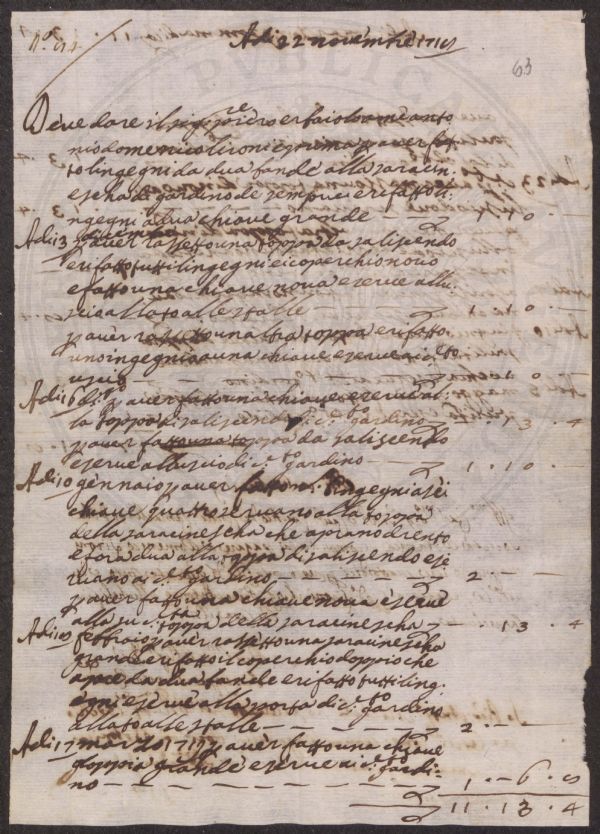 N.° 94
Adi 22 novembre 1718
63
Deve dare il sig.re piero erfaiolo a me anto
nio domenico lironi e prima p aver fat
to lingegni da dua bande alla saracin
escha di gardino de sempuci e rifatto li
ngegni a dua chiave grande 1 0
Adi 13 dicembre
p aver rasetto una toppa da saliscendo
e rifatto tutti lingegni e icoperchio novo
e fatto una chiave nova e serve allu
scio allato alle stalle 1 10
p aver rasetto una ltra toppa e rifatto
uno ingegnio a una chiave e serve a i c.to
uscio
Adi 16 di.o p aver fatto una chiave e serve al
la toppa di saliscendo di c.to gardino 13 4
p aver fatto una toppa da saliscendo
e serve alluscio di c.to gardino 1 10
Adi 10 gennaio p aver fatto lingegni a sei
chiave quattro servano alla toppa
della saracinescha che aprano drento
e fora dua alla toppa di saliscendo e se
rvano a i c.to gardino 2
p aver fatto una chiave nova e serve
alla su c.ta toppa della saracinescha 13 4
Adi 10 febbraio p aver rasetto una saracinescha
grande e rifatto il coperchio doppio che
apre da dua bande e rifatto tutti ling
egni e serve alla porta di c.to gardino
allato alle stalle 2
Adi 17 marzo 1719 p aver fatto una chiave
doppia grande e serve a i c.to gardi
no 1 6 8
11 13 4